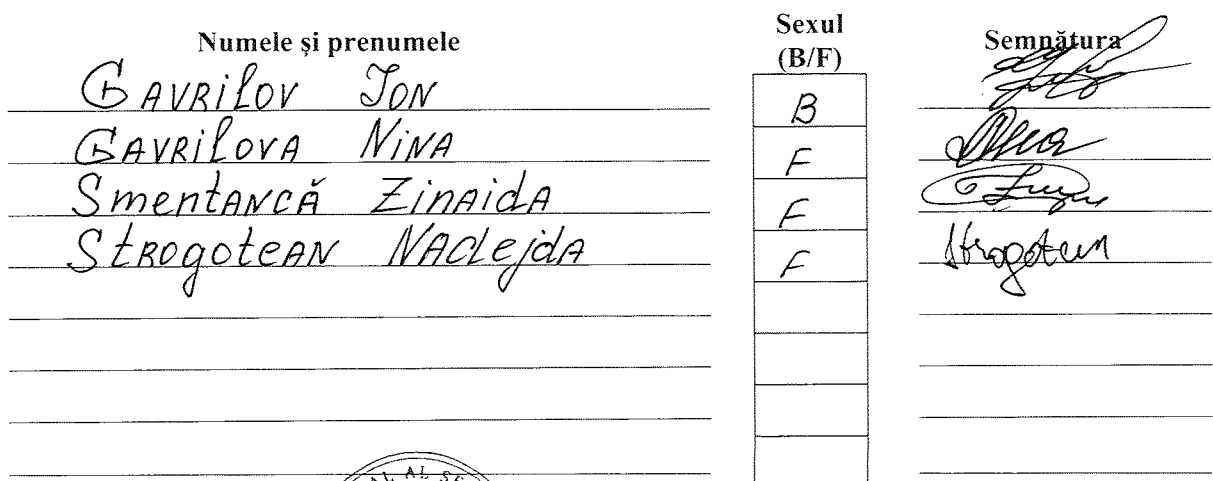 Numele şi prenumele Sexul (B/F) Semnătura
Gavrilov Ion B
Gavrilova Nina F
Smentancă Zinaida F
Strogotean Nadejda F Strogotean
AL AL SE